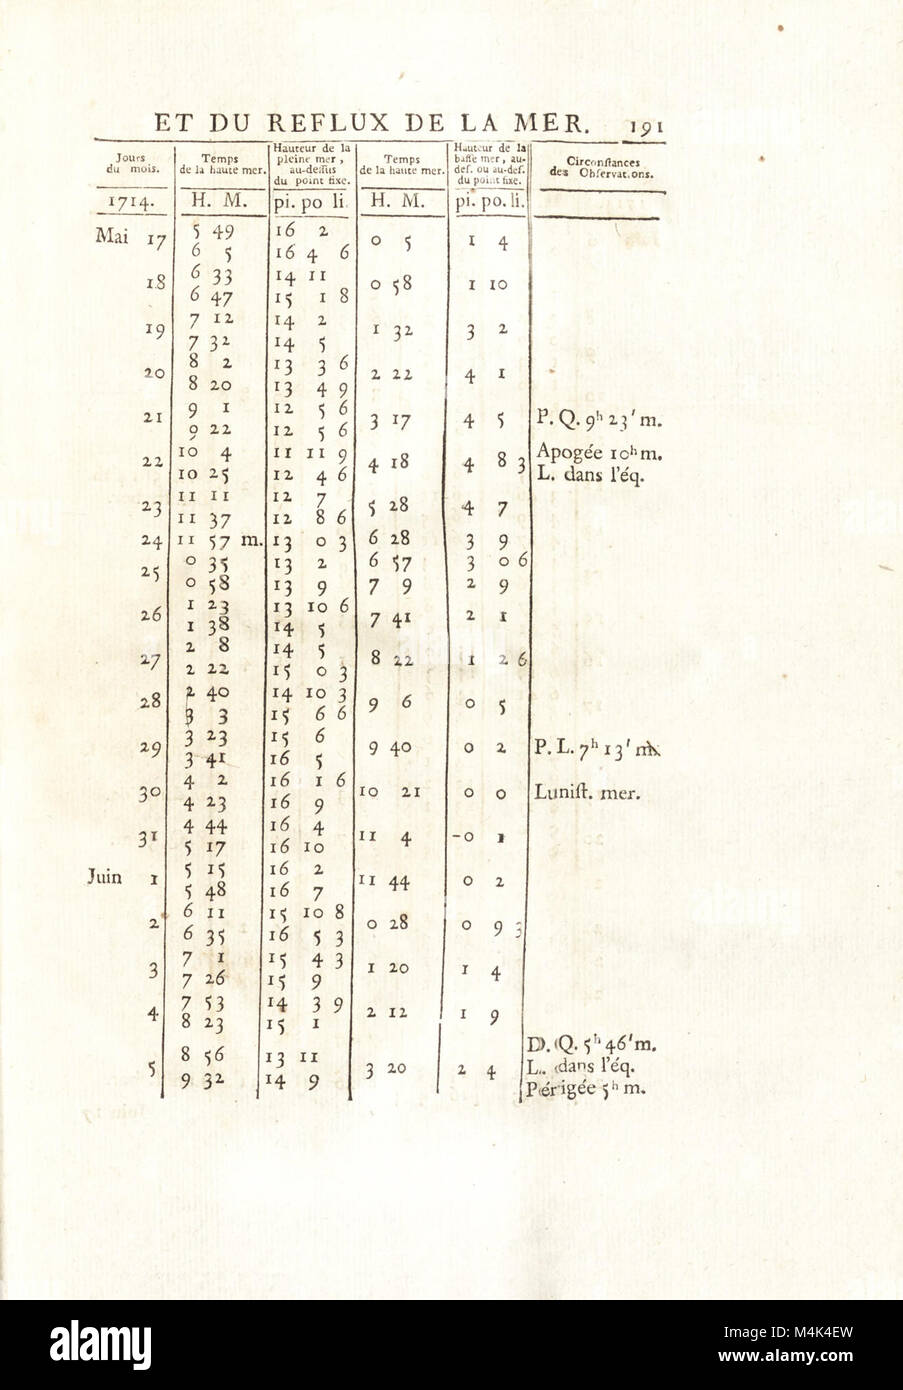 ET DU REFLUX DE LA MER. 191
Jours du mois. Temps de la haute mer. Hauteur de la pleine mer, au-deſſus du point fixe. Temps de la haute mer. Hauteur de la baſſe mer, au-deſ. ou au-deſ. du point fixe. Circonſtances des Obſervations.
1714. H. M. pi. po li. H. M. pi. po. li.
Mai 17 5 49 16 2 0 5 1 4
6 5 16 4 6
18 6 33 14 11 0 58 1 10
6 47 15 1 8
19 7 12 14 2 1 32 3 2
7 32 14 5
20 8 2 13 3 6 2 22 4 1
8 20 13 4 9
21 9 1 12 5 6 3 17 4 5 P. Q. 9h 23' m.
9 22 12 5 6
22 10 4 11 11 9 4 18 4 8 3 Apogée 10h m.
10 25 12 4 6 L. dans l'éq.
23 11 11 12 7 5 28 4 7
11 37 12 8 6
24 11 57 m. 13 0 3 6 28 3 9
25 0 35 13 2 6 57 3 0 6
0 58 13 9 7 9 2 9
26 1 23 13 10 6 7 41 2 1
1 38 14 5
27 2 8 14 5 8 22 1 2 6
2 22 15 0 3
28 2 40 14 10 3 9 6 0 5
3 3 15 6 6
29 3 23 15 6 9 40 0 2 P. L. 7h 13' m.
3 41 16 5
30 4 2 16 1 6 10 21 0 0 Luniſt. mer.
4 23 16 9
31 4 44 16 4 11 4 -0 1
5 17 16 10
Juin 1 5 15 16 2 11 44 0 2
5 48 16 7
2 6 11 15 10 8 0 28 0 9 3
6 35 16 5 3
3 7 1 15 4 3 1 20 1 4
7 26 15 9
4 7 53 14 3 9 2 12 1 9
8 23 15 1
5 8 56 13 11 3 20 2 4 D. Q. 5h 46' m.
9 32 14 9 L. dans l'éq.
Périgée 5h m.
alamy
Image ID: M4K4EW
www.alamy.com